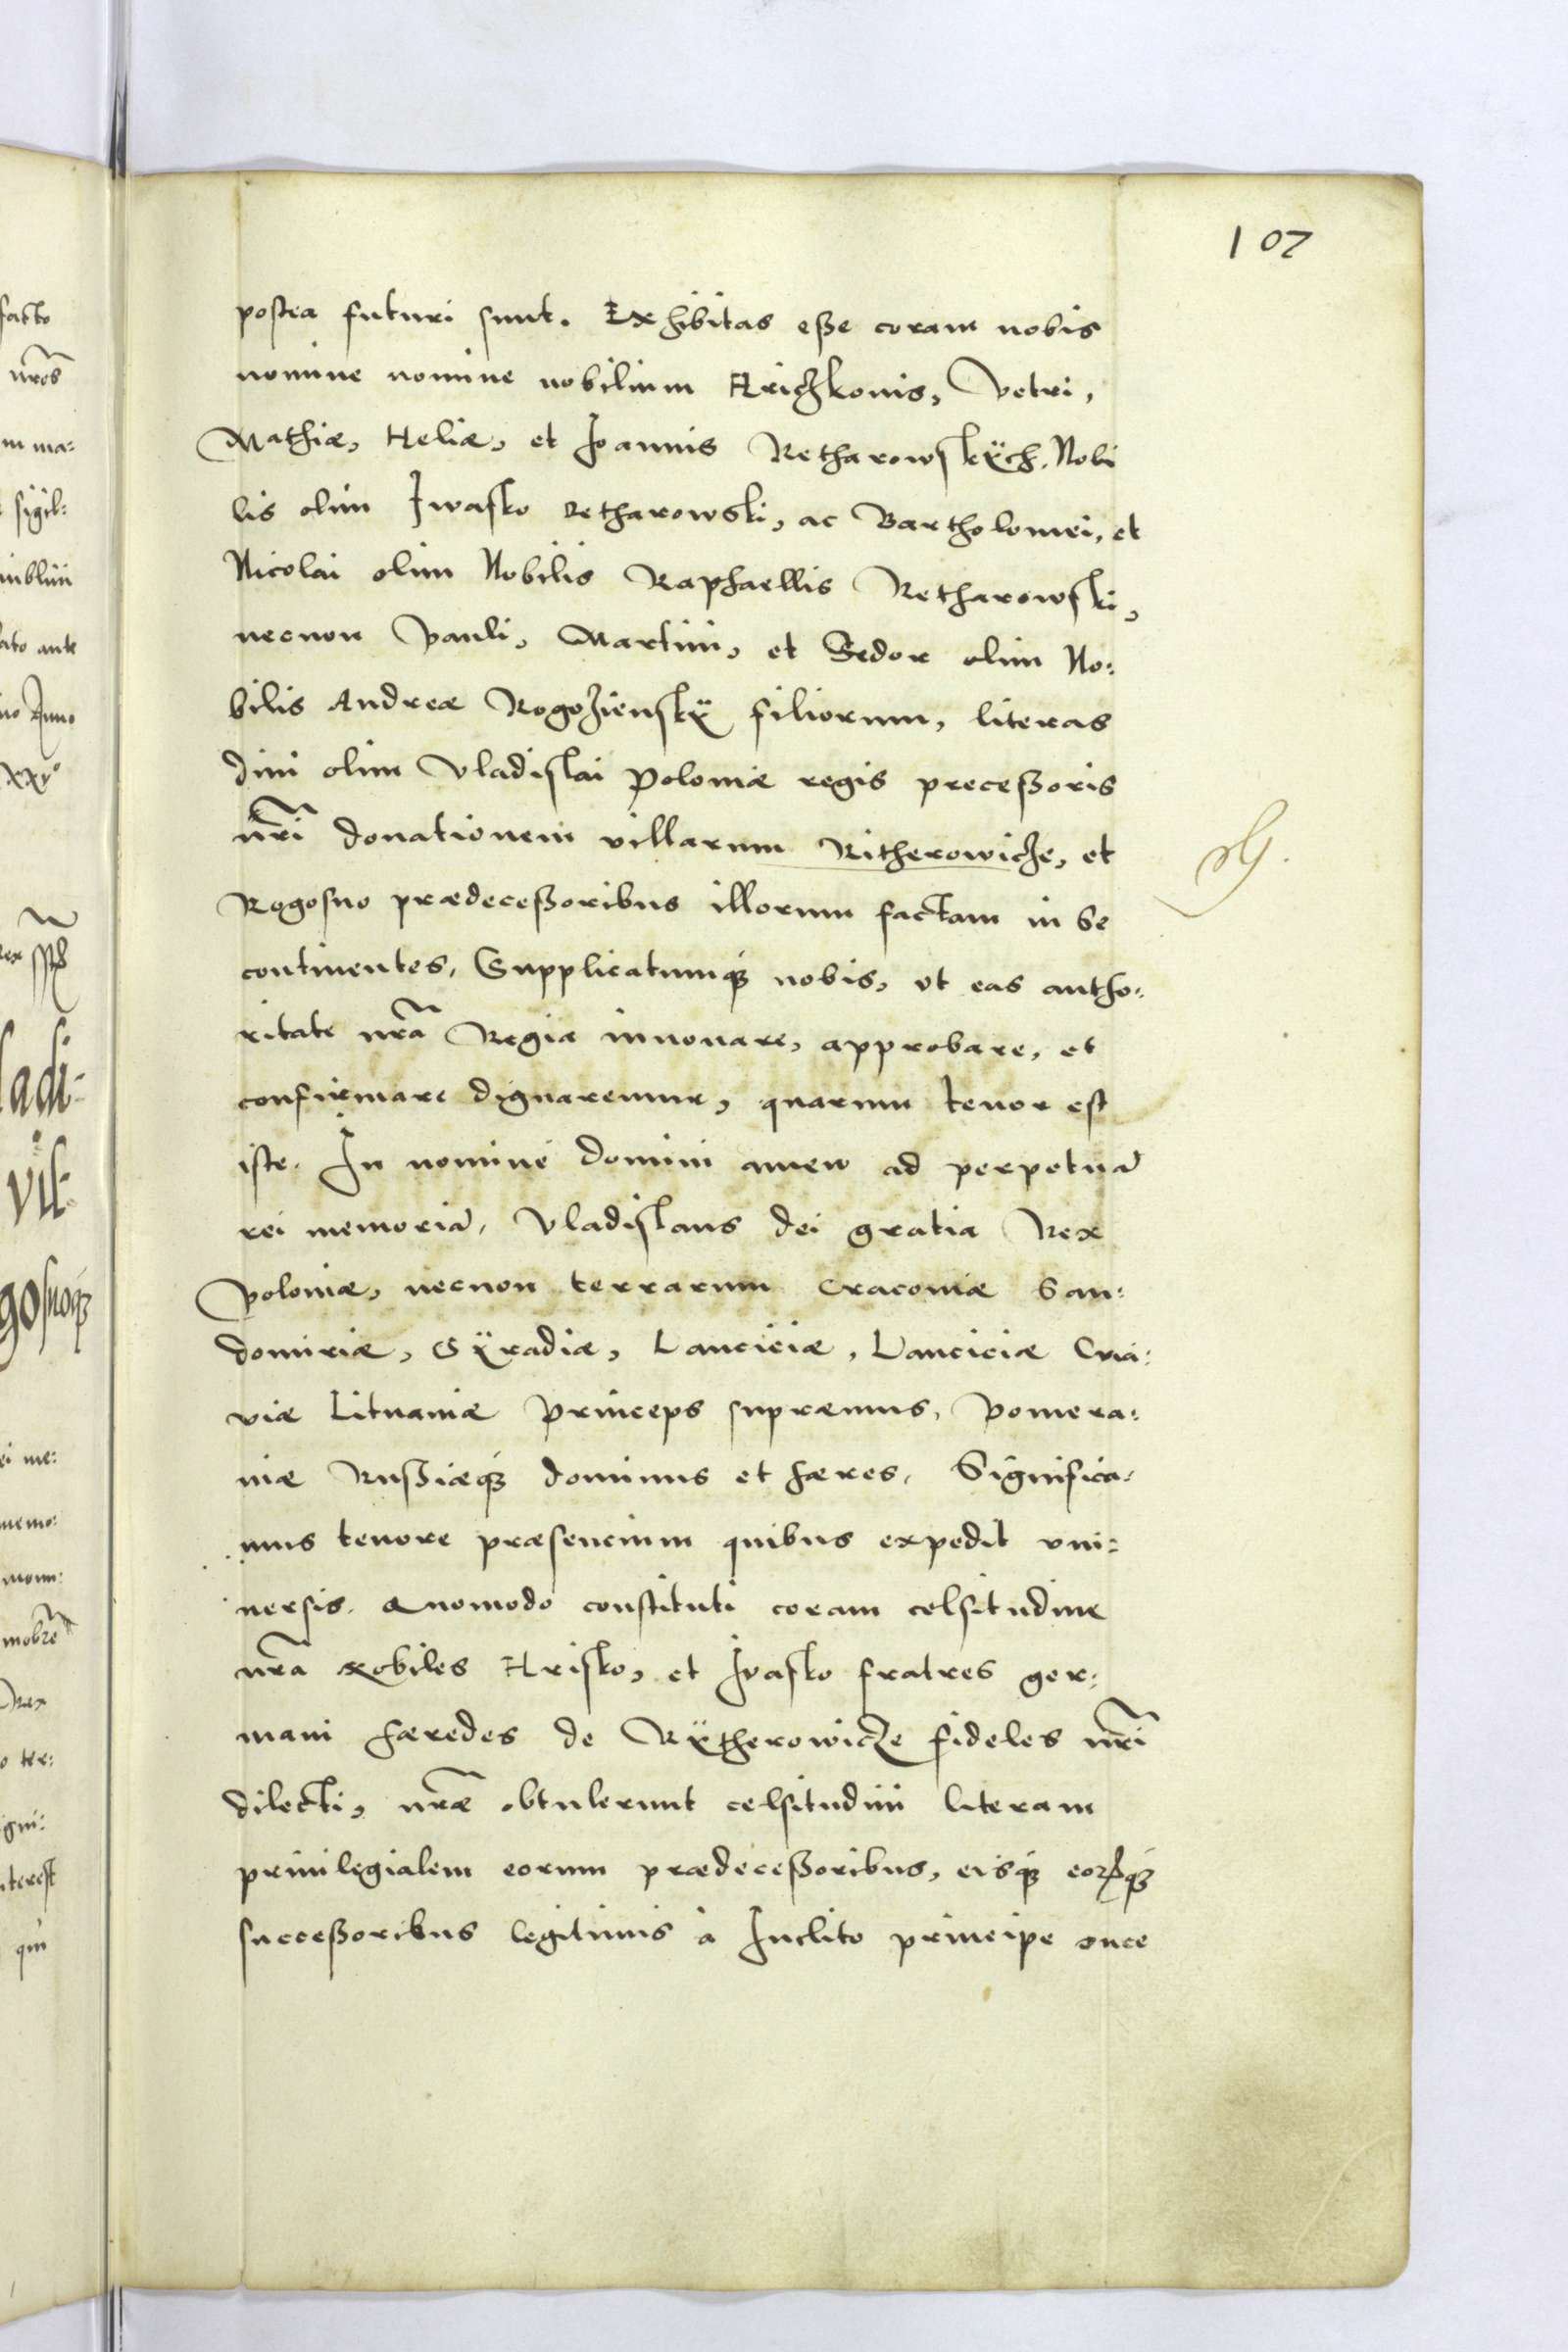 107
postea futuri sunt. Exhibitas eße coram nobis
nomine nomine nobilium Hriczkonis, Petri,
Mathiæ, Heliæ, et Joannis Retharowskÿch, Nobi
lis olim Iwasko Retharowski, ac Bartholomei, et
Nicolai olim Nobilis Raphaellis Retharowski,
necnon Pauli, Martini, et Fedor olim No:
bilis Andreæ Rogozienskÿ filiorum, literas
diui olim Vladislai Poloniæ regis preceßoris
nr̃i donationem villarum Ritherowicze, et
Rogosno prædeceßoribus illorum factam in se
continentes, Supplicatumq́; nobis, vt eas autho:
ritate nr̃a Regia innouare, approbare, et
confirmare dignaremur, quarum tenor est
iste. In nomine domini amen ad perpetuã
rei memoriã, Vladislaus dei gratia Rex
Poloniæ, necnon terrarum Cracoviæ San:
domiriæ, Sÿradiæ, Lanciciæ, Lanciciæ Cuia:
viæ Lituaniæ Princeps supræmus, Pomera:
niæ Rußiæq́; dominus et hæres, Significa:
mus tenore præsencium quibus expedit vni:
uersis. Quomodo constituti coram celsitudine
nr̃a Nobiles Hrisko, et Ivasko fratres ger:
mani hæredes de Rÿtherowicze fideles nr̃i
dilecti, nr̃æ obtulerunt celsitudini literam
priuilegialem eorum prædeceßoribus, eisq́; eorꝝq́;
succeßoribus legitimis à Inclito principe duce
facto
nr̃os
m ma:
sigil:
ato ante
no Anno
xxv°
ladi:
vil:
gosnoq́;
ei me:
memo:
Rex
o ter:
igni:
nterest
qui